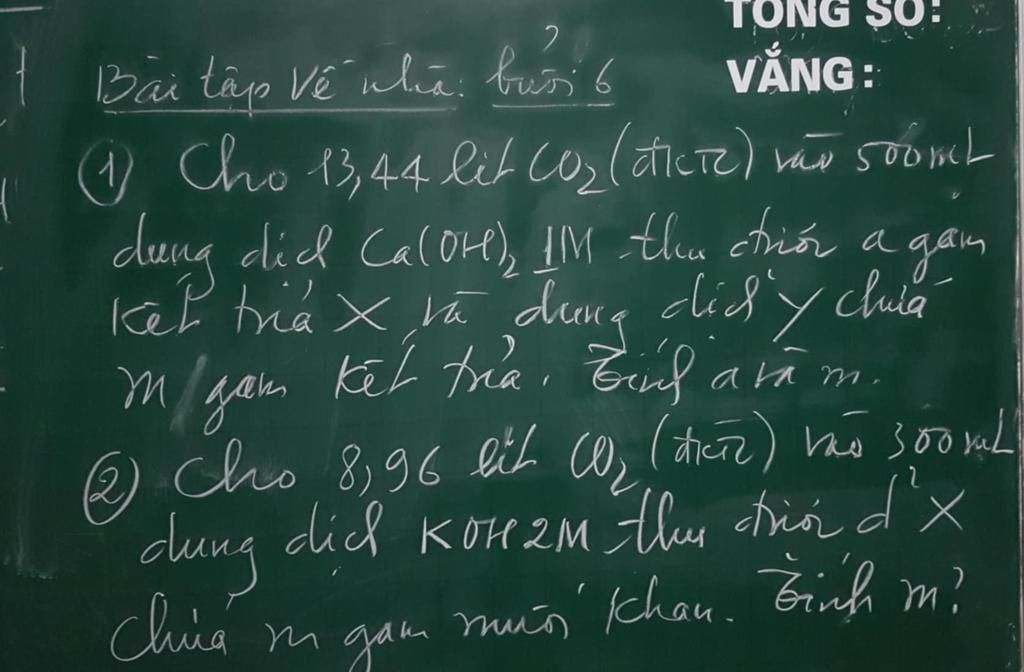 TỔNG SỐ:
VẮNG:
Bài tập về nhà: buổi 6
① Cho 13,44 lít CO₂ (đktc) vào 500ml
dung dịch Ca(OH)₂ 1M thu được a gam
kết tủa X và dung dịch Y chứa
m gam kết tủa. Tính a và m.
② Cho 8,96 lít CO₂ (đktc) vào 300ml
dung dịch KOH 2M thu được d² X
chứa m gam muối khan. Tính m?